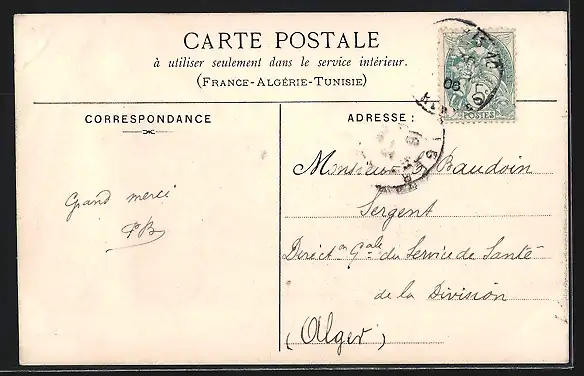 CARTE POSTALE
à utiliser seulement dans le service intérieur.
(FRANCE-ALGÉRIE-TUNISIE)
CORRESPONDANCE
Grand merci
PB
ADRESSE :
Monsieur Baudoin
Sergent
Direct.on G.ale du Service de Santé
de la Division
(Alger)
POSTES